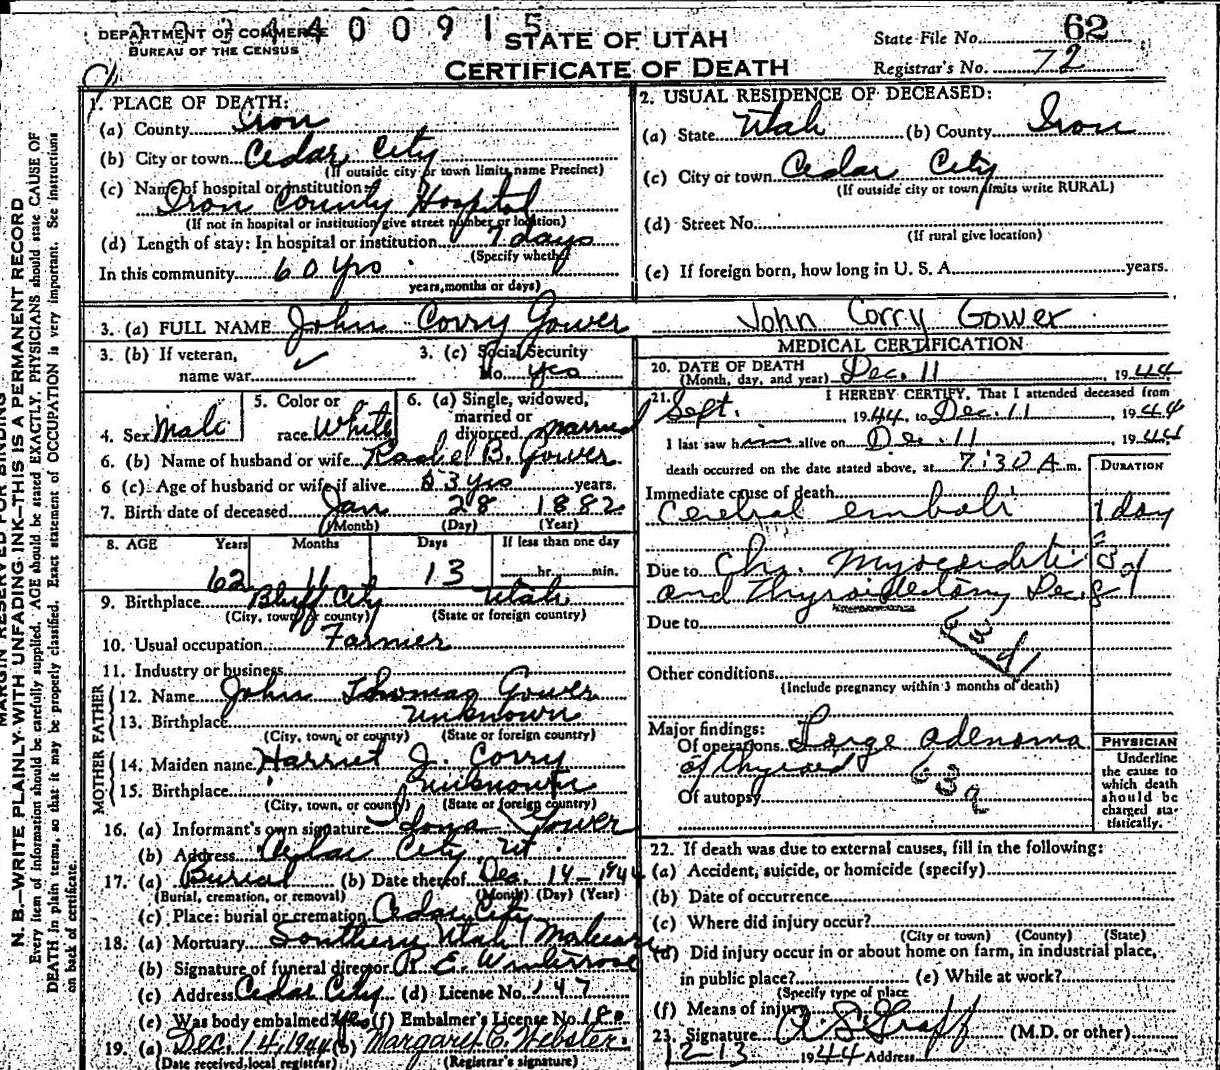 DEPARTMENT OF COMMERCE
BUREAU OF THE CENSUS
4400915
STATE OF UTAH
CERTIFICATE OF DEATH
State File No. 62
Registrar's No. 72
MARGIN RESERVED FOR BINDING
N. B.—WRITE PLAINLY WITH UNFADING INK—THIS IS A PERMANENT RECORD
Every item of information should be carefully supplied. AGE should be stated EXACTLY. PHYSICIANS should state CAUSE OF
DEATH in plain terms, so that it may be properly classified. Exact statement of OCCUPATION is very important. See instructions
on back of certificate.
1. PLACE OF DEATH:
(a) County Iron
(b) City or town Cedar City
(If outside city or town limits, name Precinct)
(c) Name of hospital or institution:
Iron County Hospital
(If not in hospital or institution give street number or location)
(d) Length of stay: In hospital or institution 7 days
(Specify whether
In this community 60 yrs
years, months or days)
2. USUAL RESIDENCE OF DECEASED:
(a) State Utah (b) County Iron
(c) City or town Cedar City
(If outside city or town limits write RURAL)
(d) Street No.
(If rural give location)
(e) If foreign born, how long in U. S. A. years.
3. (a) FULL NAME John Corry Gower John Corry Gower
3. (b) If veteran,
name war
3. (c) Social Security
No. yes
4. Sex Male
5. Color or
race White
6. (a) Single, widowed,
married or
divorced married
6. (b) Name of husband or wife Rachel B. Gower
6 (c). Age of husband or wife if alive 53 yrs years.
7. Birth date of deceased Jan 28 1882
(Month) (Day) (Year)
8. AGE Years Months Days If less than one day
62 11 13 hr. min.
9. Birthplace Bluff City Utah
(City, town, or county) (State or foreign country)
10. Usual occupation Farmer
11. Industry or business
FATHER
12. Name John Thomas Gower
13. Birthplace unknown
(City, town, or county) (State or foreign country)
MOTHER
14. Maiden name Harriet J. Corry
15. Birthplace unknown
(City, town, or county) (State or foreign country)
16. (a) Informant's own signature Gower
(b) Address Cedar City Ut.
17. (a) Burial (b) Date thereof Dec. 14-1944
(Burial, cremation, or removal) (Month) (Day) (Year)
(c) Place: burial or cremation Cedar City
18. (a) Mortuary Southern Utah Mortuary
(b) Signature of funeral director R. E. Winterrose
(c) Address Cedar City (d) License No. 147
(e) Was body embalmed? Yes (f) Embalmer's License No. 180
19. (a) Dec. 14, 1944 (b) Margaret C. Webster
(Date received local registrar) (Registrar's signature)
MEDICAL CERTIFICATION
20. DATE OF DEATH
(Month, day, and year) Dec. 11, 1944
21. I HEREBY CERTIFY, That I attended deceased from
Sept. 1944, to Dec. 11, 1944
I last saw him alive on Dec. 11 1944
death occurred on the date stated above, at 7:30 A m.
DURATION
Immediate cause of death
Cerebral emboli 1 day
Due to Chr. Myocarditis
and Thyroidectomy Dec. 8
Due to
63 d1
Other conditions
(Include pregnancy within 3 months of death)
Major findings:
Of operations Large adenoma
of thyroid
Of autopsy
63a
PHYSICIAN
Underline
the cause to
which death
should be
charged sta-
tistically.
22. If death was due to external causes, fill in the following:
(a) Accident, suicide, or homicide (specify)
(b) Date of occurrence
(c) Where did injury occur?
(City or town) (County) (State)
(d) Did injury occur in or about home on farm, in industrial place,
in public place? (e) While at work?
(Specify type of place
(f) Means of injury
23. Signature A. L. Graff (M.D. or other)
12-13 1944 Address